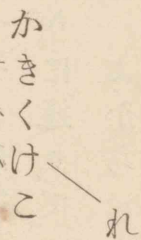 かきくけこ
れ